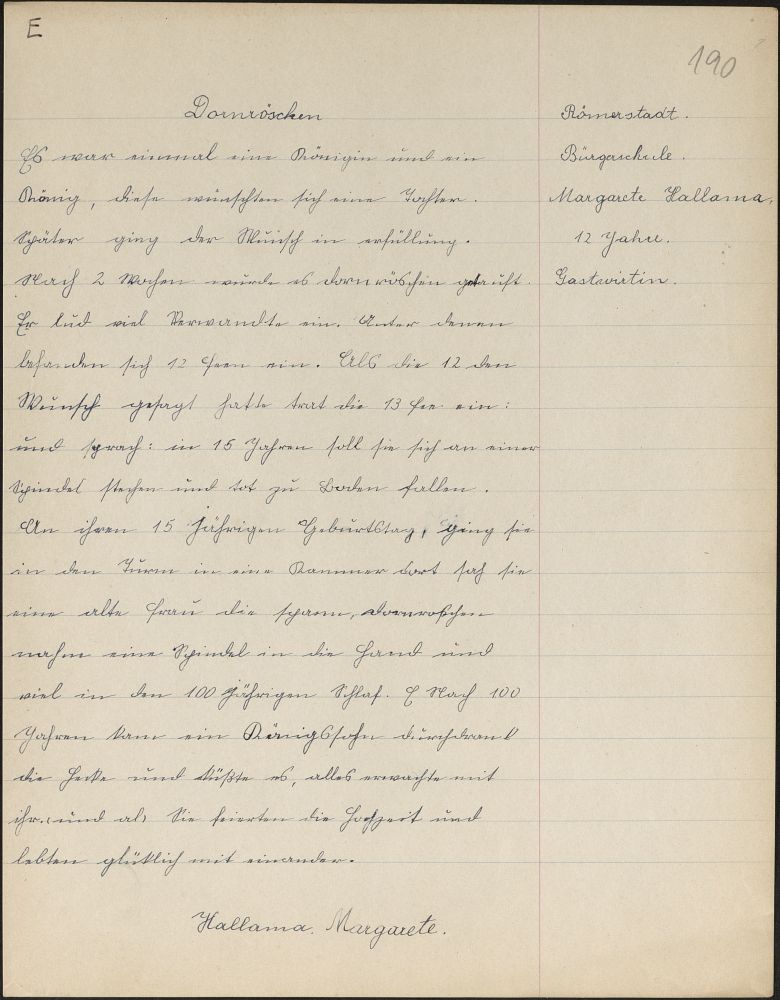 E
190
Dornröschen
Es war einmal eine Königin und ein
König, diese wünschten sich eine Tochter.
Später ging der Wunsch in erfüllung.
Nach 2 Wochen wurde es dornröschen getauft.
Er lud viel Verwandte ein. Unter denen
befanden sich 12 Feen ein. Als die 12 den
Wunsch gesagt hatte trat die 13 fee ein:
und sprach: in 15 Jahren soll sie sich an einer
Spindel stechen und tot zu Boden fallen.
An ihren 15 Jährigen Geburtstag, ging sie
in den Turm in eine Kammer dort sah sie
eine alte Frau die spann, dornroschen
nahm eine Spindel in die Hand und
viel in den 100 Jährigen Schlaf. Nach 100
Jahren kam ein Königssohn durchdrank
die Hecke und küßte es, alles erwachte mit
ihr. und als Sie feierten die Hochzeit und
lebten glüklich mit einander.
Hallama. Margarete.
Römerstadt.
Bürgerschule.
Margarete Hallama.
12 Jahre.
Gastwirtin.